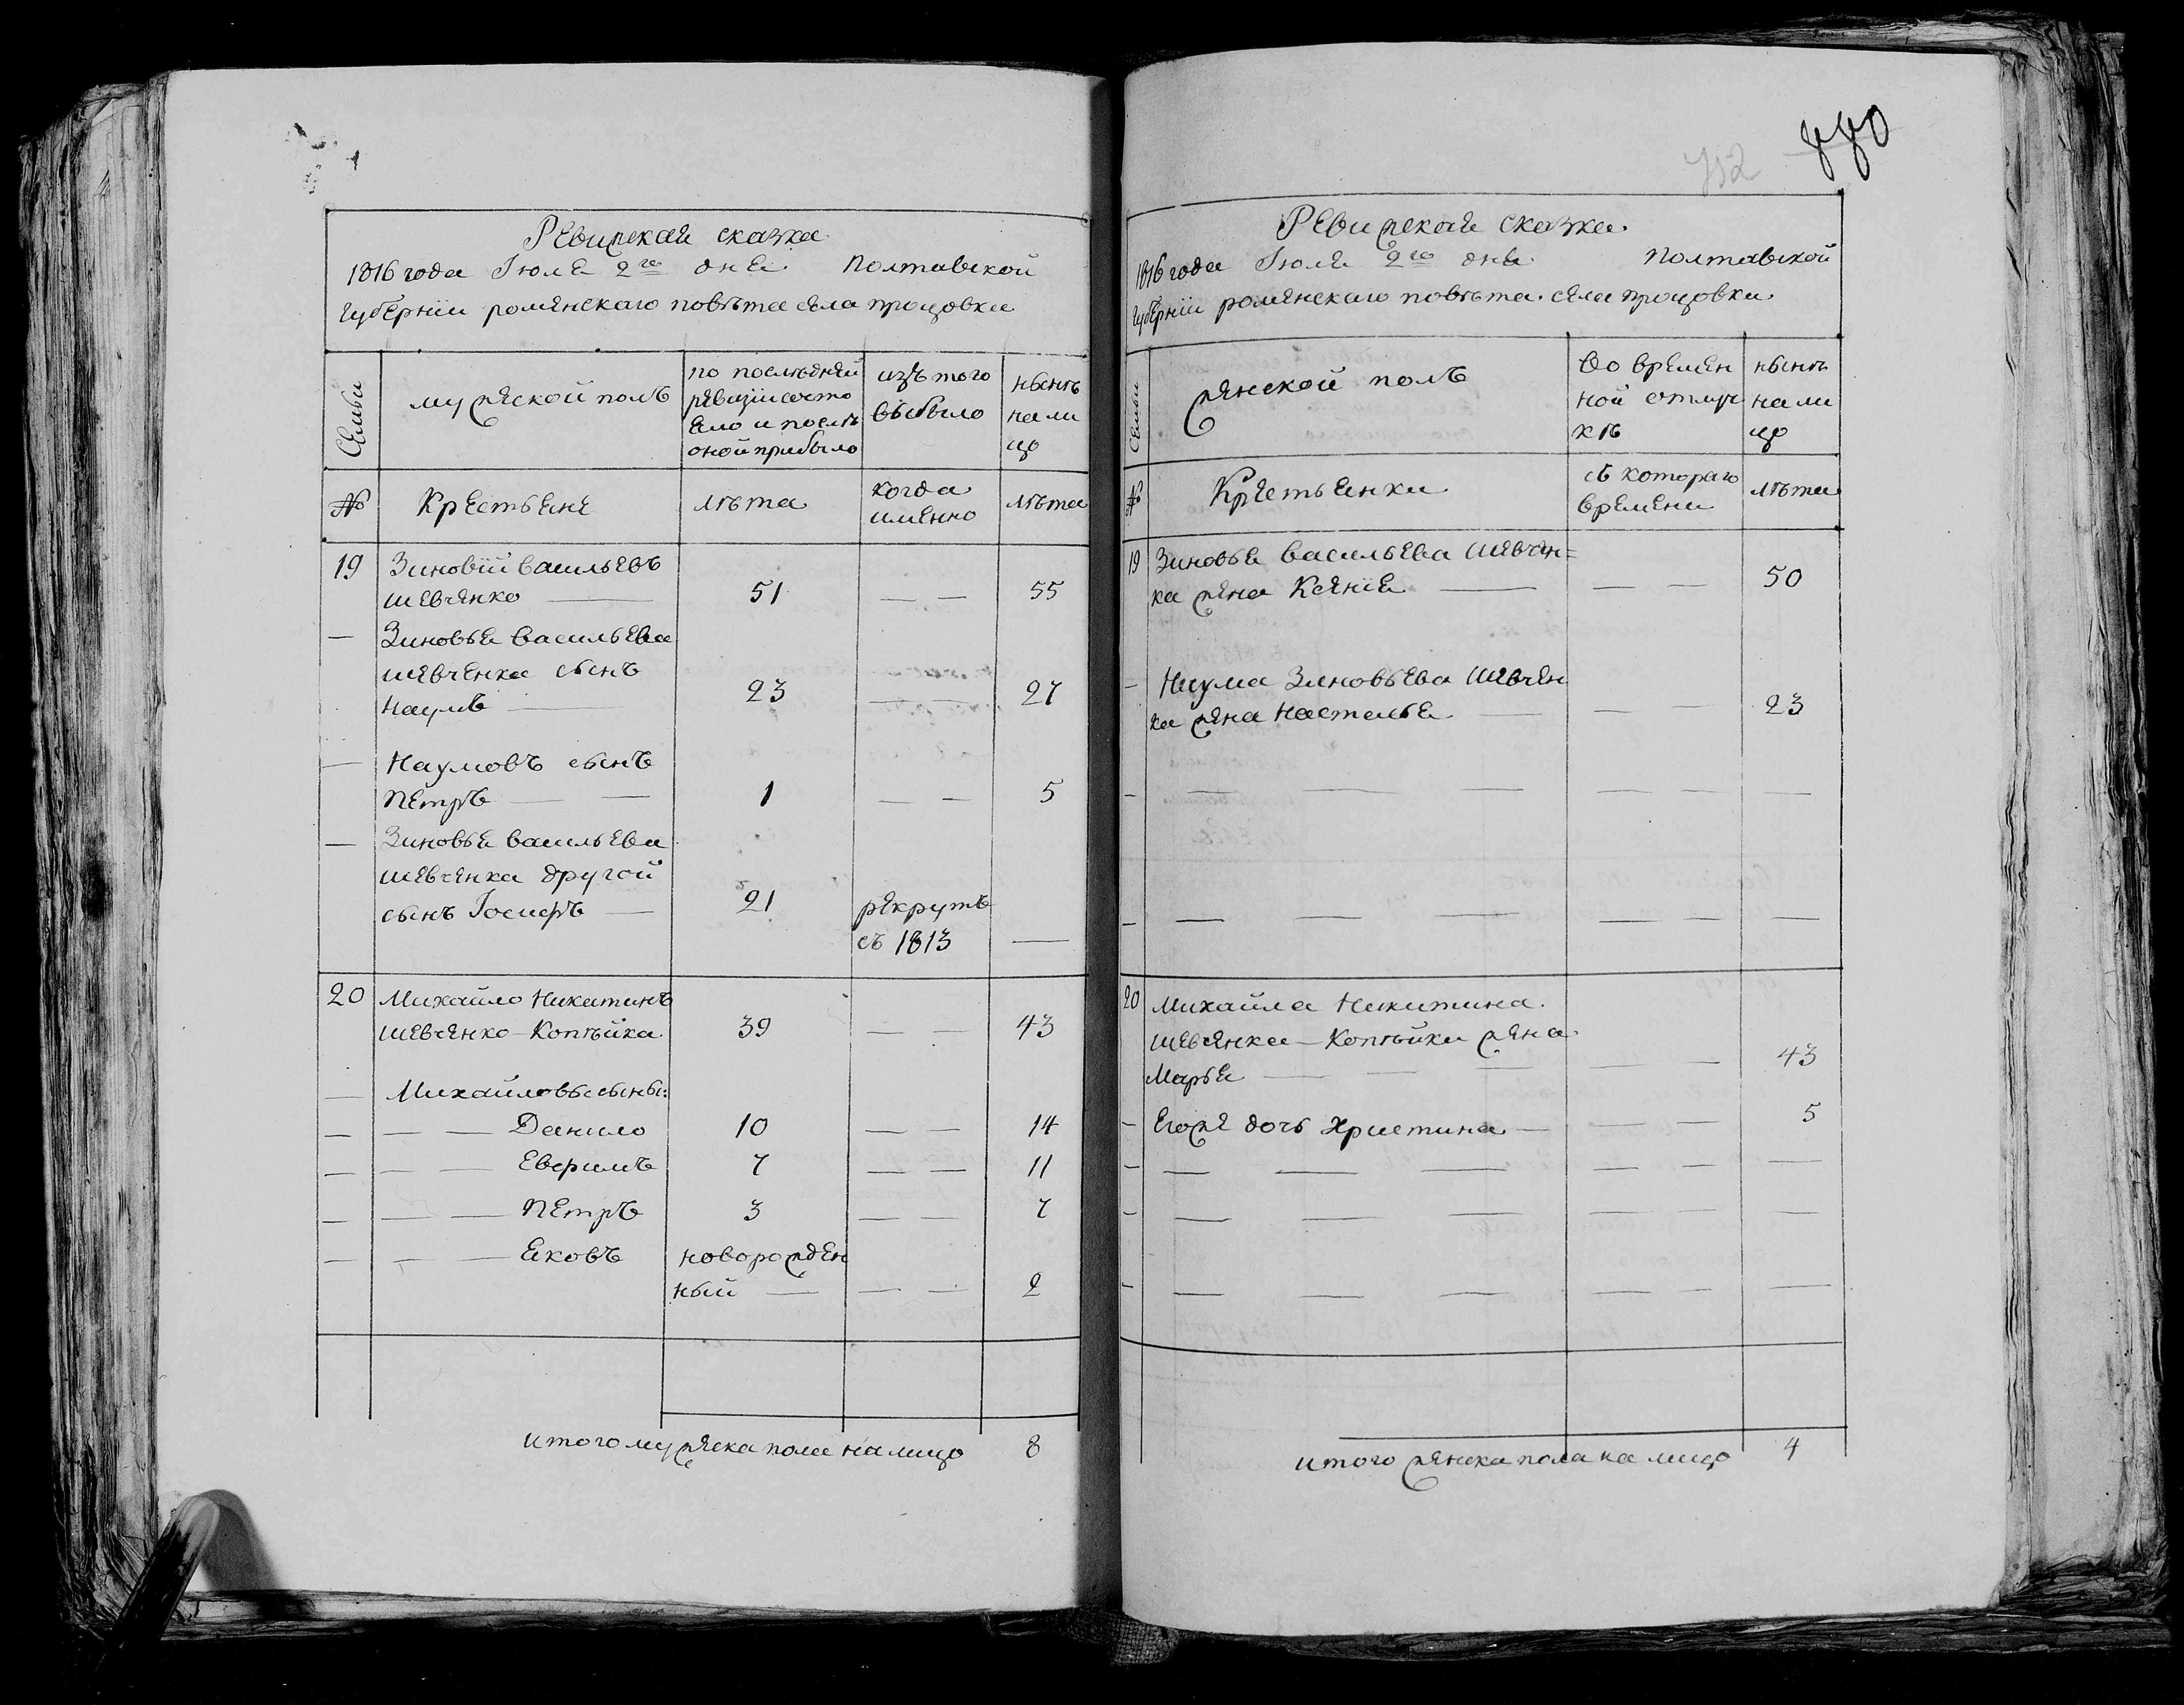 Ревижская сказка
1816 года Іюля 2го дня Полтавской
Губерніи роменскаго повѣта села процовки
Семьи
мужеской полъ
по послѣдней
ревизіи состо
яло и послѣ
оной прибыло
изъ того
выбыло
нынѣ
на ли
цо
№
Крестьяне
лѣта
когда
именно
лѣта
19
Зиновій васильевъ
шевченко — 51 — — 55
— Зиновья васильева
шевченка сынъ
Наумъ — 23 — — 27
— Наумовъ сынъ
Петръ — — 1 — — 5
— Зиновья васильева
шевченка другой
сынъ Іосифъ — 21 рекрутъ
съ 1813 —
20 Михайло Никитинъ
шевченко-Копѣйка 39 — — 43
— Михайловы сыны:
— — — Данило 10 — — 14
— — — Евфимъ 7 — — 11
— — — Петръ 3 — — 7
— — — Яковъ новорожден
ный — — — 2
итого мужеска пола на лицо 8
752 880
Ревижская сказка.
1816 года Іюля 2го дня Полтавской
Губерніи роменскаго повѣта села процовки.
Семьи
женской полъ
Во времен
ной отлуч
кѣ
нынѣ
на ли
цо
№
Крестьянки
съ котораго
времени
лѣта
19 Зиновья васильева шевчен=
ка жена Ксенія — — — 50
— Наума Зиновьева шевчен
ка жена Настасья — — — 23
— — — — — — —
— — — — — — —
20 Михайла Никитина
шевченка-Копѣйки жена
Марья — — — — — 43
— Егоже дочь Христина — — — 5
— — — — — — —
— — — — — — —
— — — — — — —
итого женска пола на лицо 4